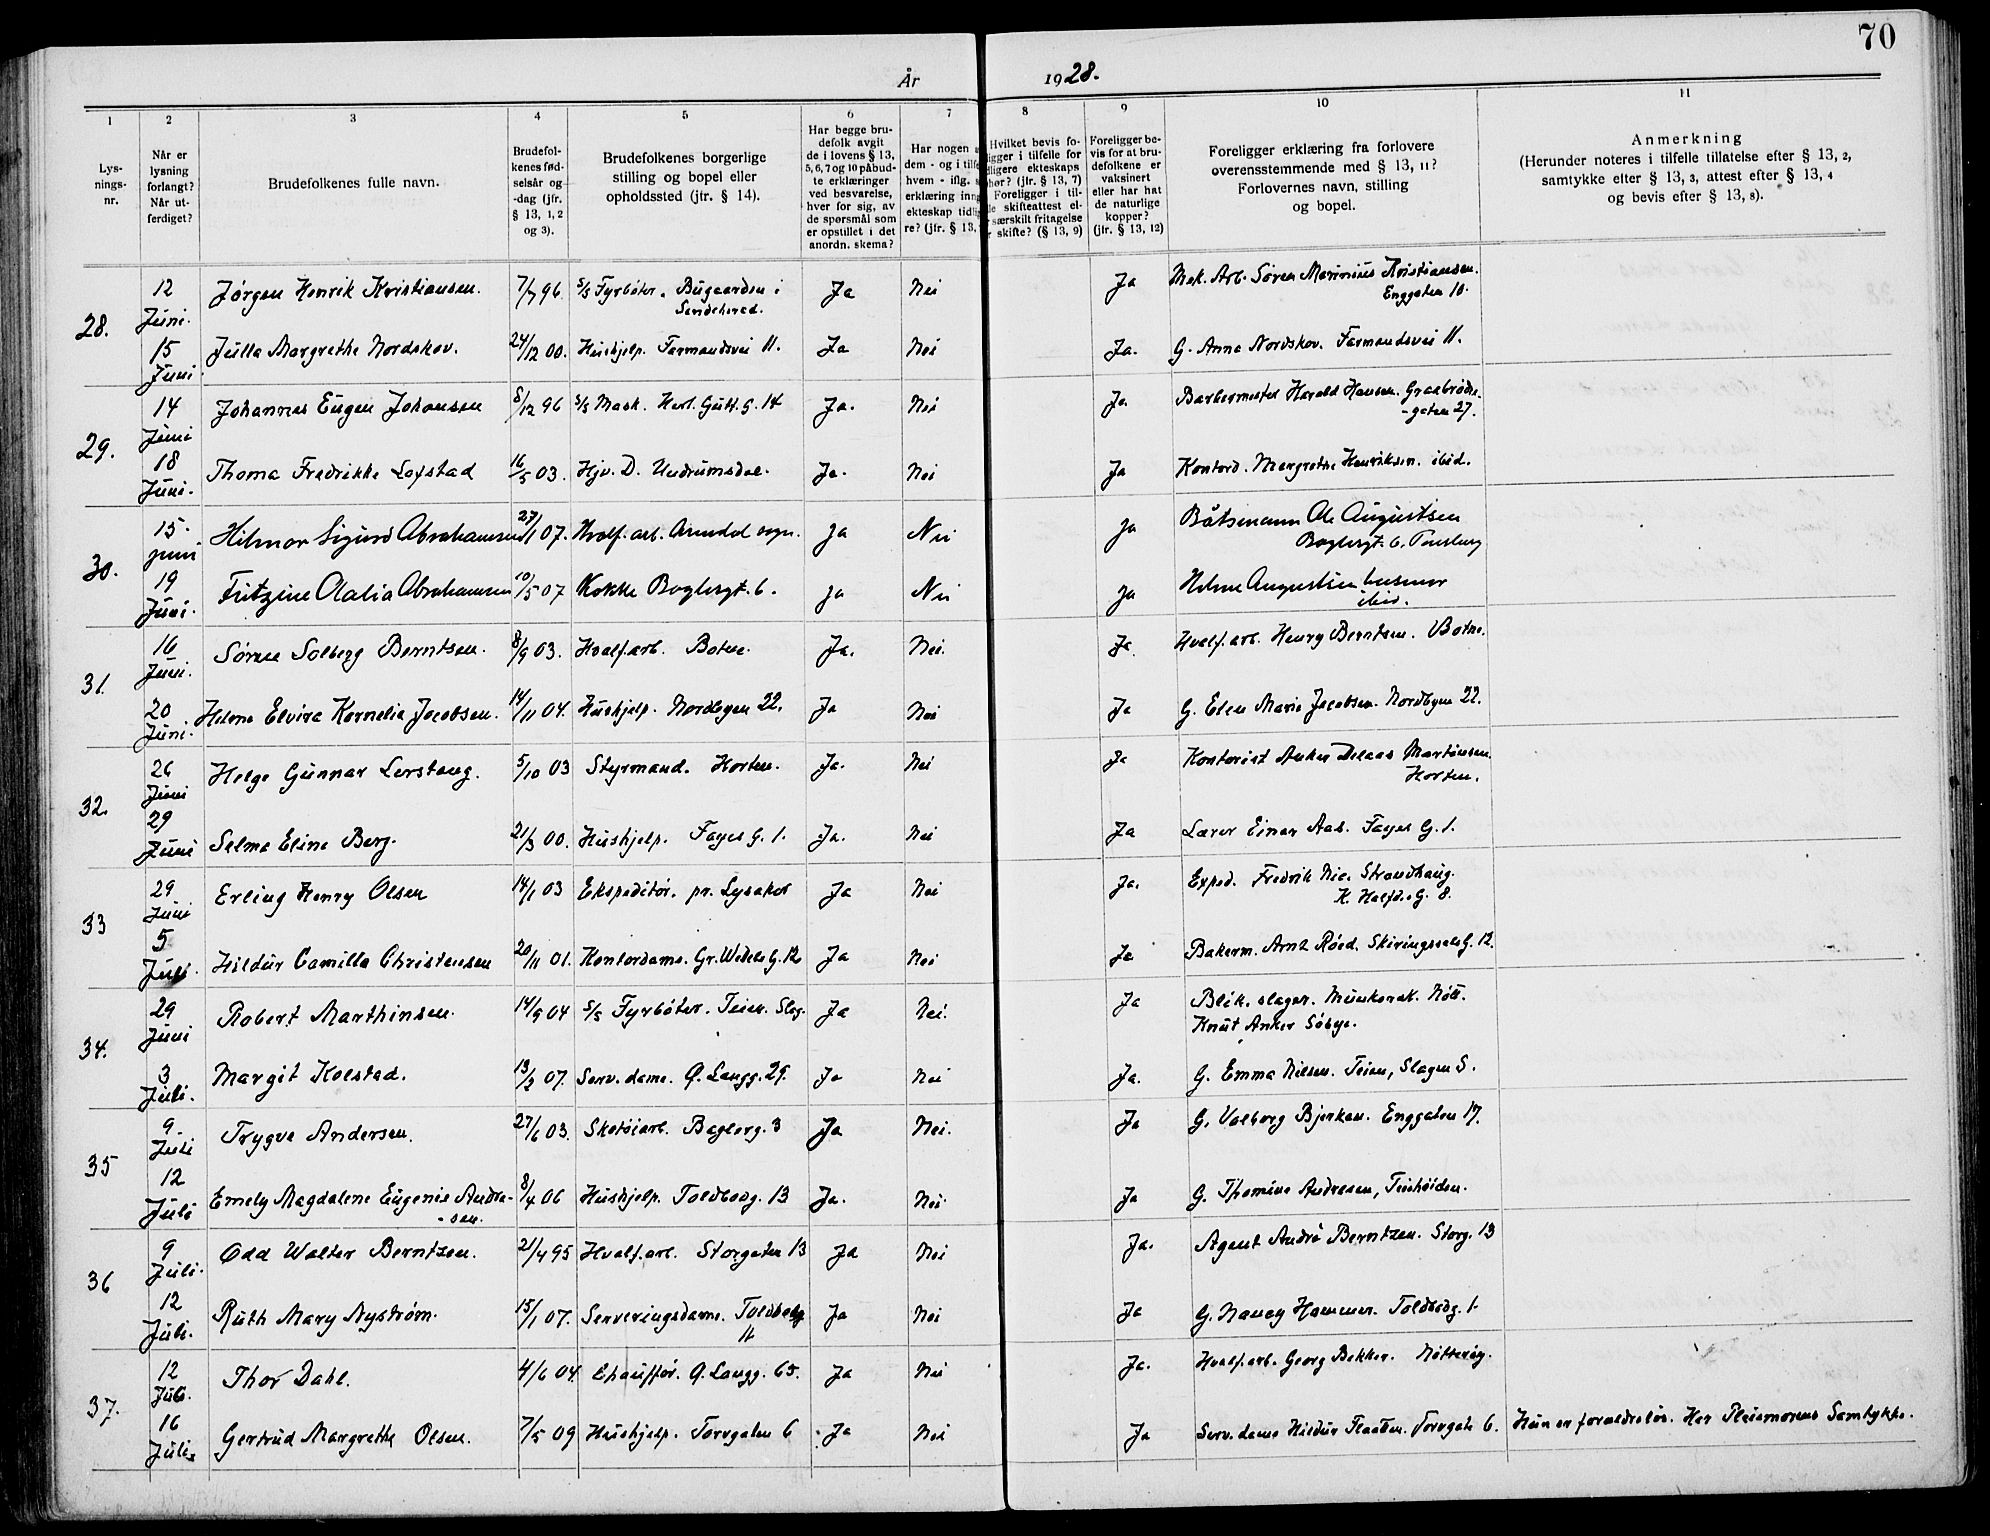 70
År 1928.
1 2 3 4 5 6 7 8 9 10 11
Lys-
nings-
nr.
Når er
lysning
forlangt?
Når ut-
ferdiget?
Brudefolkenes fulle navn.
Brudefol-
kenes fød-
selsår og
-dag (jfr.
§ 13, 1, 2
og 3).
Brudefolkenes borgerlige
stilling og bopel eller
opholdssted (jfr. § 14).
Har begge bru-
defolk avgit
de i lovens § 13,
5, 6, 7 og 10 påbud-
te erklæringer
ved besvarelse,
hver for sig, av
de spørsmål som
er opstillet i det
anordn. skema?
Har nogen
dem - og i tilfe
hvem - iflg.
erklæring inng
ekteskap tidlig
re? (jfr. § 13,
Hvilket bevis fo-
ligger i tilfelle for
dligere ekteskaps
phør? (jfr. § 13, 7)
Foreligger i til-
de skifteattest el-
særskilt fritagelse
r skifte? (§ 13, 9)
Foreligger be-
vis for at bru-
defolkene er
vaksinert
eller har hat
de naturlige
kopper?
(jfr. § 13, 12)
Foreligger erklæring fra forlovere
overensstemmende med § 13, 11?
Forlovernes navn, stilling
og bopel.
Anmerkning
(Herunder noteres i tilfelle tillatelse efter § 13, 2,
samtykke efter § 13, 3, attest efter § 13, 4
og bevis efter § 13, 8).
28.
12 Juni. Jørgen Henrik Kristiansen. 7/7 96. S/S Fyrbøter. Bugaarden i Ja Nei Ja Mek. Arb. Søren Marinius Kristiansen.
Sandeherad. Enggaten 10.
15 Juni Julla Margrethe Nordskov. 24/12 00. Hushjelp. Farmandsvei 11. Ja Nei Ja. G. Anna Nordskov. Farmandsvei 11.
29.
14 Juni Johannes Eugen Johansen 8/12 96 S/S Mask. Herl. Gutt. G. 14 Ja. Nei Ja Barbermester Harald Hansen. Graabrødre
-gaten 27.
18 Juni. Thoma Fredrikke Lofstad 16/5 03. Hjv. D. Undrumsdal. Ja. Nei Ja Kontord. Margrethe Henriksen. ibid.
30.
15. juni Hilmar Sigurd Abrahamsen 27/1 07. Hvalf. arb. Arendal sogn. ja Nei ja Båtsmann Ole Augustsen
Baglergt. 6, Tønsberg
19 Juni. Fritzine Olalia Abrahamsen 10/5 07 Kokke Baglergt. 6. ja Nei ja Helene Augustsen husmor
ibid.
31.
16 Juni. Sørene Solberg Berntsen. 8/9 03. Hvalf. arb. Botne. Ja. Nei. Ja. Hvalf. arb. Henry Berntsen. Botne.
20 Juni. Helene Elvira Kornelia Jacobsen. 14/11 04. Hushjelp. Nordbyen 22. Ja Nei Ja G. Elen Marie Jacobsen. Nordbyen 22.
32.
26 Juni Helge Gunnar Lerstang. 5/10 03 Styrmand. Horten. Ja. Nei Ja Kontorist Anker Martinsen.
Horten.
29 Juni Selma Eline Berg. 21/3 00. Hushjelp. Fayes G. 1. Ja. Nei Ja Lærer Einar Aas. Fayes G. 1.
33
29 Juni Erling Henry Olsen 14/1 03 Ekspeditør. pr. Lysaker Ja Nei Ja. Exped. Fredrik Nic. Strandhaug.
K. Halfd. G. 8.
5 Juli. Hildur Camilla Christensen 20/11 01. Kontordame. Gr. Wedels G. 12 Ja Nei Ja Bakerm. Arnt Røed. Skiringssals G. 12.
34.
29 Juni Robert Marthinsen. 14/9 04 S/S Fyrbøter. Teien. Slag. Ja Nei. Ja Blik. slager. Munkerek. Nøtt.
Knut Anker Søbye.
3 Juli. Margit Kolstad. 13/2 07. Serv. dame. Ø. Langg. 29. Ja Nei Ja. G. Emma Nilsen. Teien, Slagen S.
35
9 Juli Trygve Andersen. 27/6 03. Skotøiarb. Baglerg. 3 Ja Nei. Ja G. Valborg Bjerkan. Enggaten 17.
12 Juli Emely Magdalene Eugenie Andre- 8/4 06 Hushjelp. Toldbodg. 13 Ja. Nei Ja G. Thomine Andresen, Teiehøiden.
-sen.
36
9 Juli. Odd Walter Berntzen. 21/4 95 Hvalf. arb. Storgaten 13 Ja Nei Ja. Agent André Berntzen. Storg. 13
12 Juli. Ruth Mary Nystrøm. 15/1 07. Serveringsdame. Toldbodg Ja Nei Ja G. Nancy Hammer. Toldbodg. 1.
37.
12 Juli. Thor Dahl. 4/6 04. Chauffør. Ø. Langg. 65. Ja Nei Ja. Hvalf. arb. Georg Bekker. Nøtterøy.
16 Juli Gertrud Margrethe Olsen. 7/5 09 Hushjelp. Torvgaten 6 Ja Nei Ja Serv. dame Hildur Flaaten. Torvgate 6. Hun er forældreløs. Har Pleiemorens Samtykke.